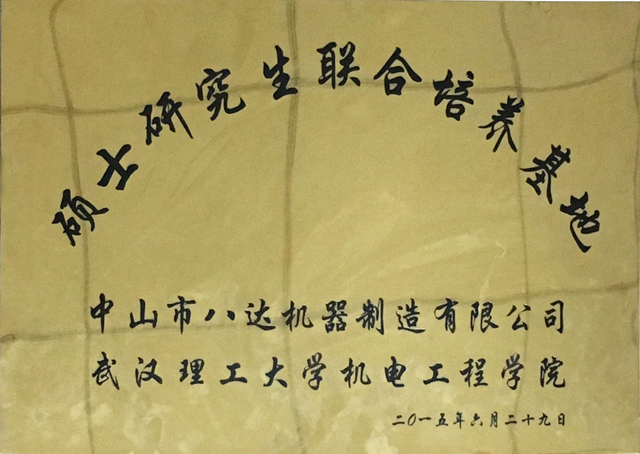 硕士研究生联合培养基地
中山市八达机器制造有限公司
武汉理工大学机电工程学院
二〇一五年六月二十九日